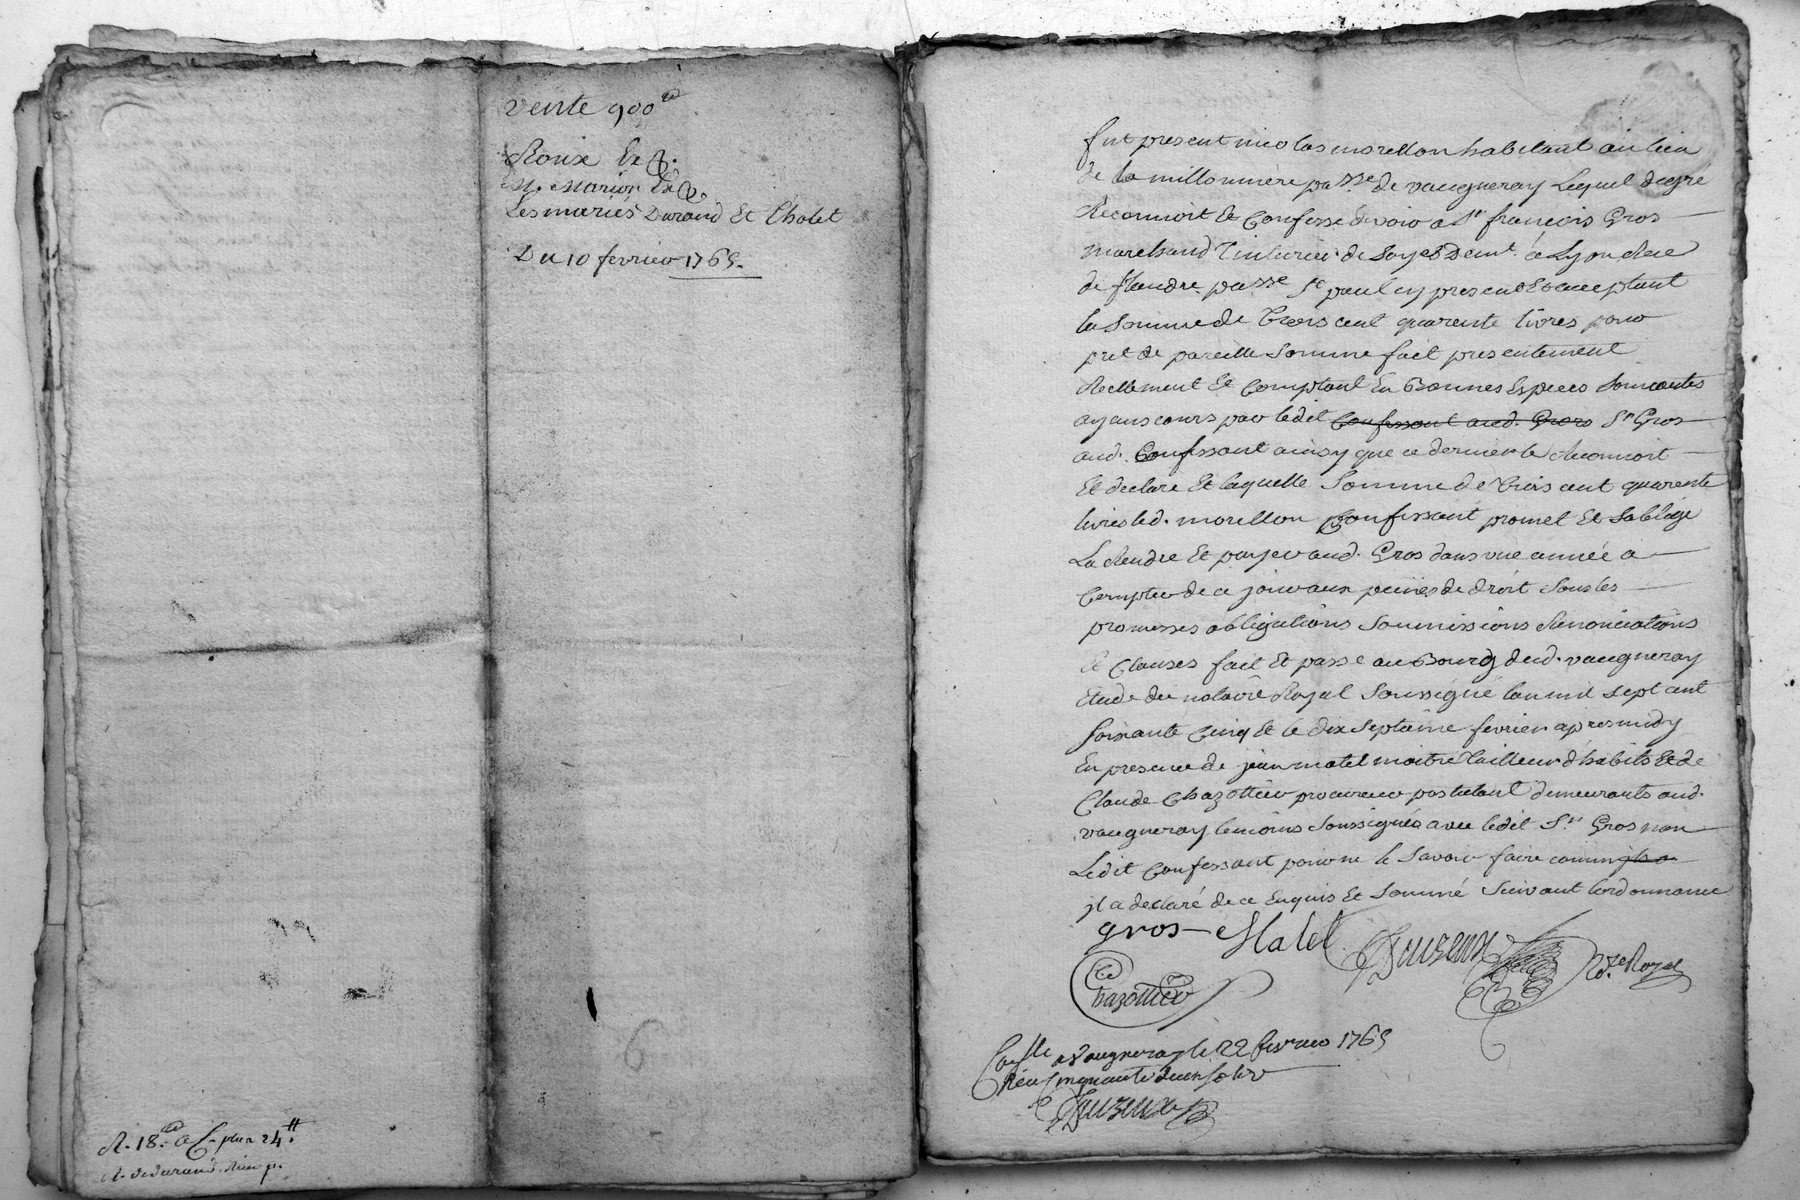 vente 900ᵗᵗ
Roux Et
M. Marion Et
Les mariés Durand Et Cholet
Du 10 fevrier 1765.
R. 18.
plus 24ᵗᵗ.
fut present nicolas morellon habitant au lieu
de la millonniere pa.sse de vaugneray Lequel de gre
Reconnoit Et Confesse devoir a Sr francois Gros
marchand Tinturier de Soyes Demt. a Lyon Rue
de flandre pa.sse St paul cy present Et acceptant
la Somme de Trois cent quarente livres pour
pret de pareille Somme fait presentement
Reellement Et Comptant En Bonnes Especes Sonnantes
ayans cours par ledit Confessant aud. Gros Sr Gros
aud. Confessant ainsy que ce dernier le Reconnoit
Et declare Et laquelle Somme de Trois cent quarente
livres led. morellon Confessant promet Et Soblige
La Rendre Et payer aud. Gros dans une année a
Compter de ce jour aux peines de droit Sous les
promesses obligations Soumissions Renonciations
Et Clauses fait Et passé au Bourg dud. vaugneray
Etude du notaire Royal Soussigné lan mil sept cent
Soixante Cinq Et le dix Septieme fevrier apres midy
En presence de jean matel maitre Tailleur d'habits Et de
Claude Chazottier procureur postulant demeurants aud.
vaugneray temoins Soussignés avec ledit Sr. Gros non
Ledit Confessant pour ne le Savoir faire comme
jl a declaré de ce Enquis Et Sommé Suivant lordonnance
gros Matel
Nre Royal
Chazottier
Conlle a Vaugneray le 22 fevrier 1765
Reçu Cinquante deux sols